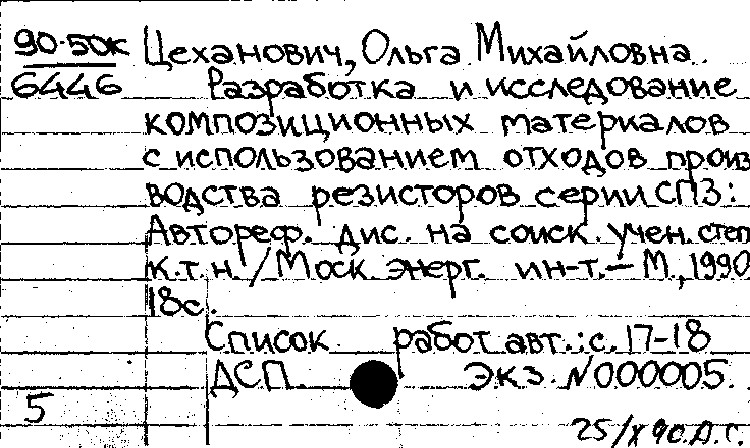 90-50к Цеханович, Ольга Михайловна.
6446 Разработка и исследование
композиционных материалов
с использованием отходов произ
водства резисторов серии СП3:
Автореф. дис. на соиск. учен. степ
к.т.н. / Моск. энерг. ин-т. – М., 1990
18с.
Список работ авт.: с. 17-18
ДСП. Экз. N000005.
5
25/X 90. А. Г.